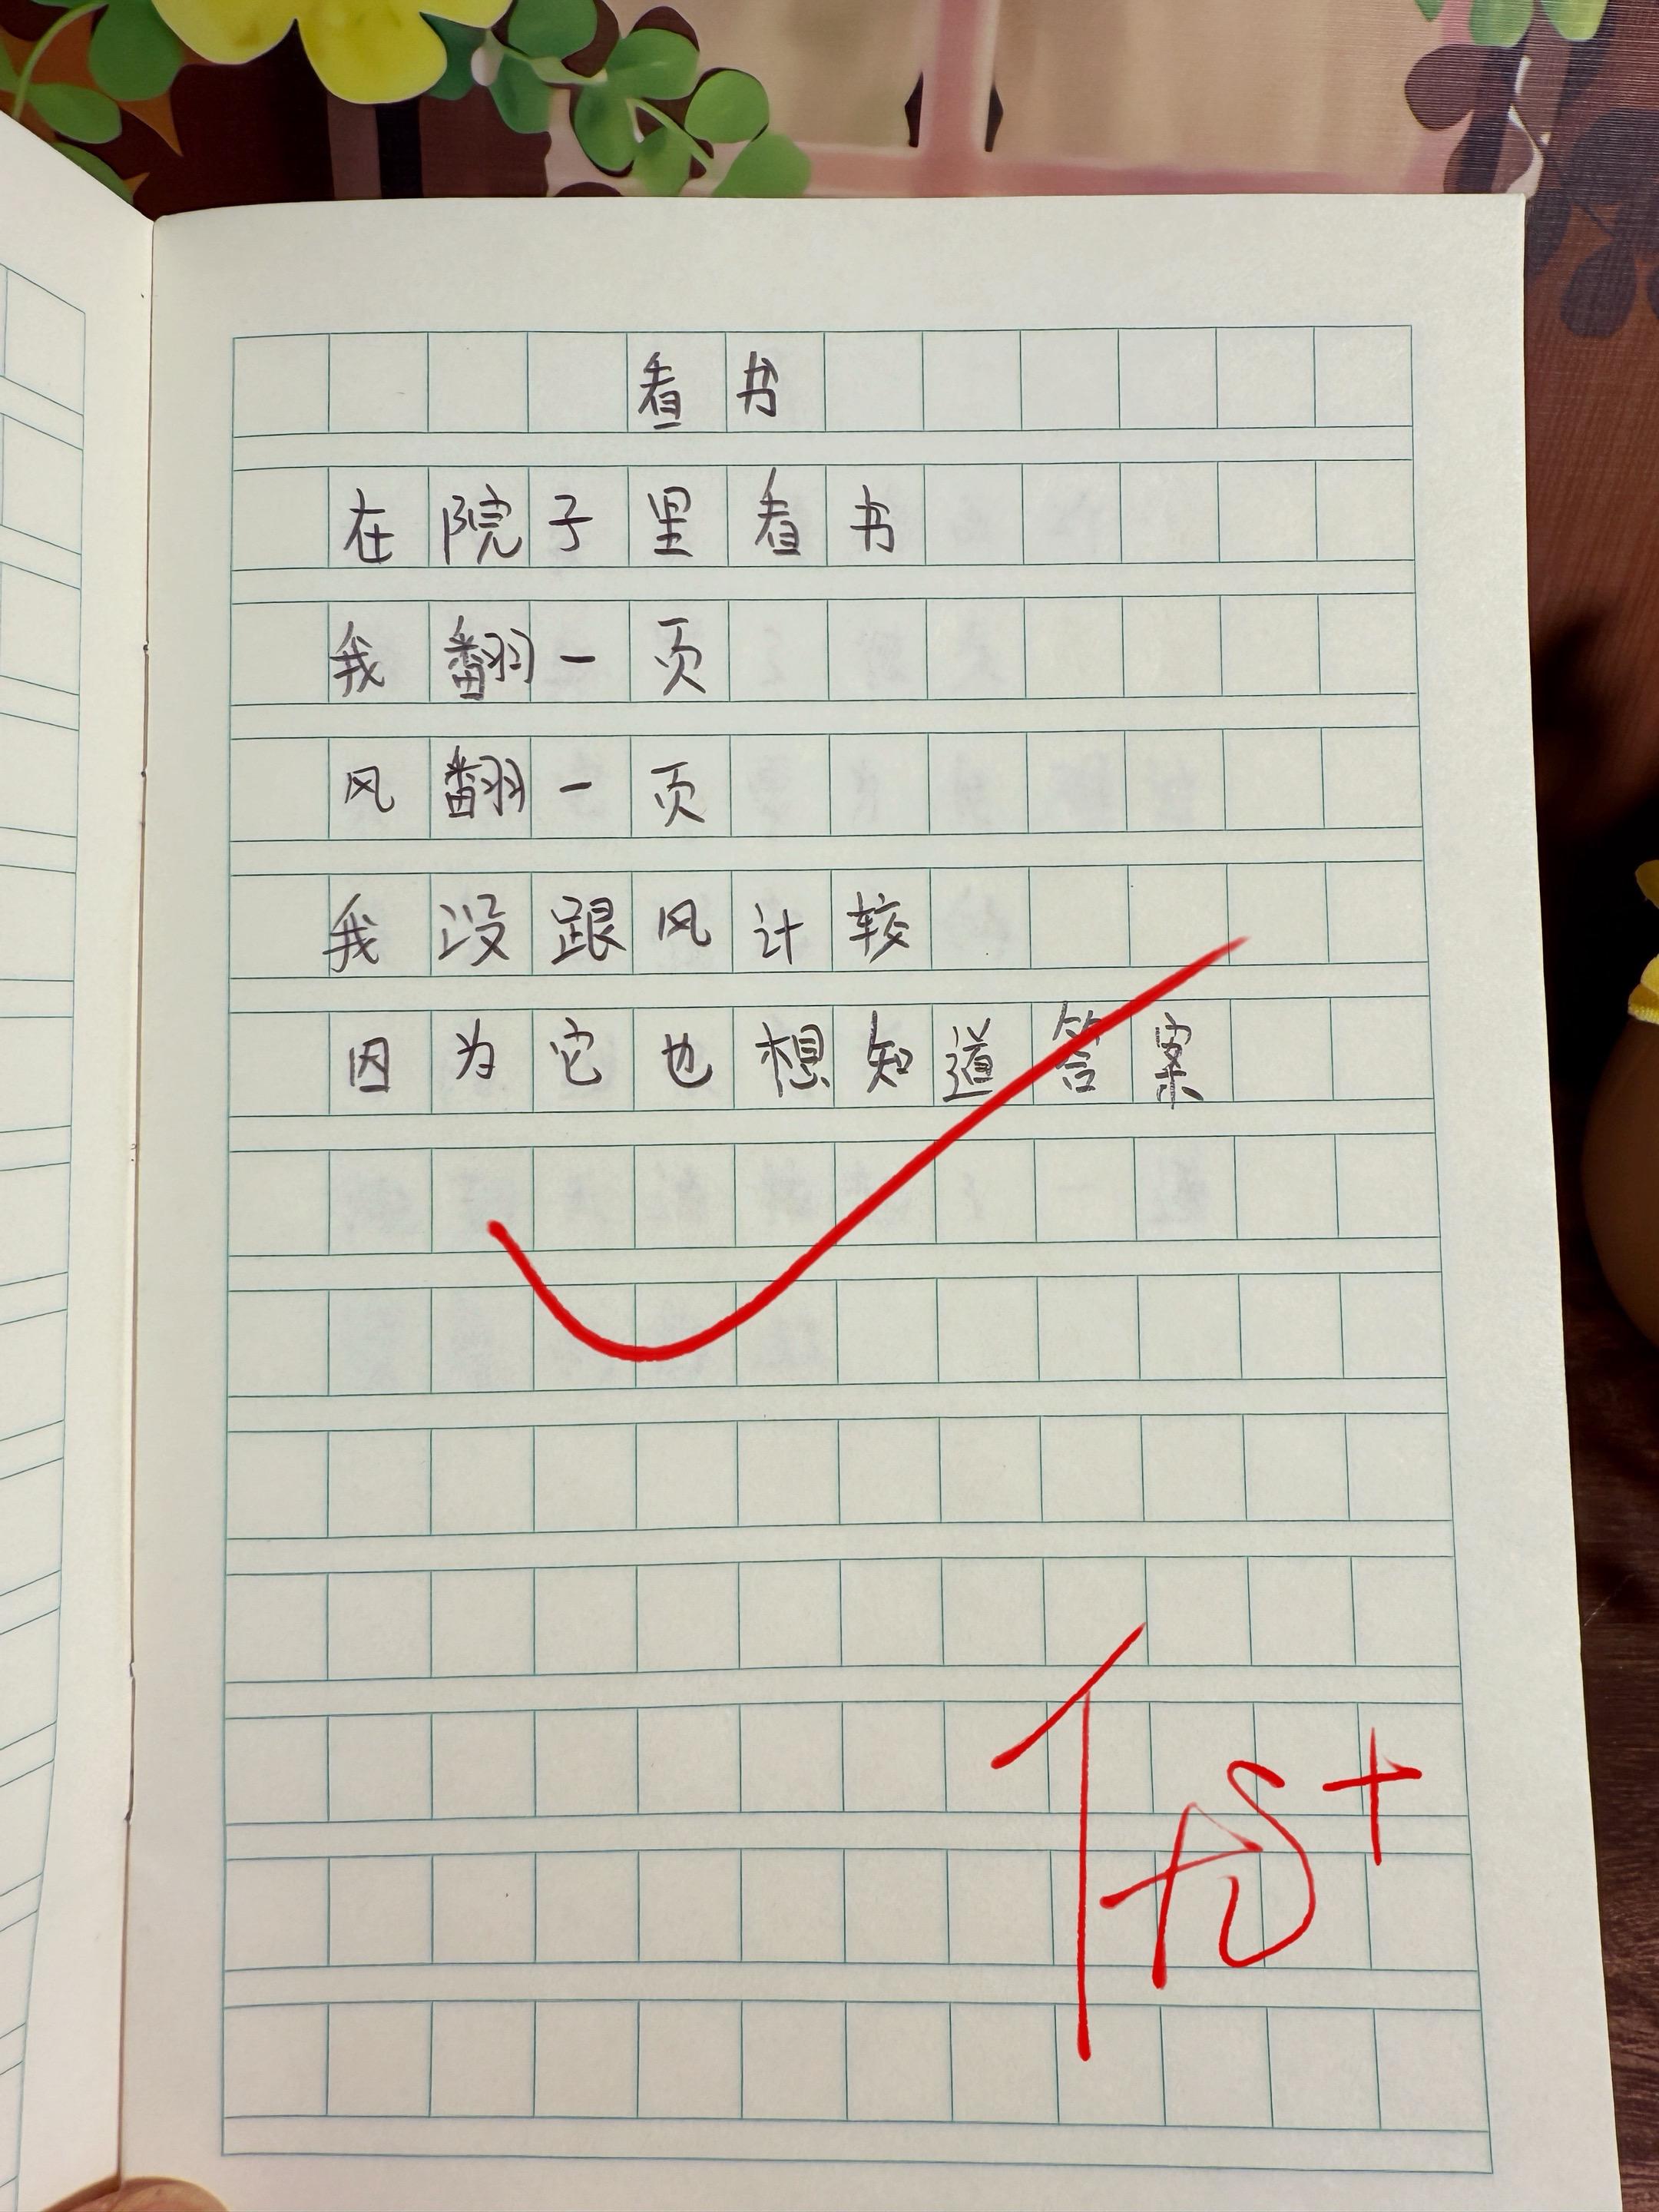 看书
在院子里看书
我翻一页
风翻一页
我没跟风计较
因为它也想知道答案
优+